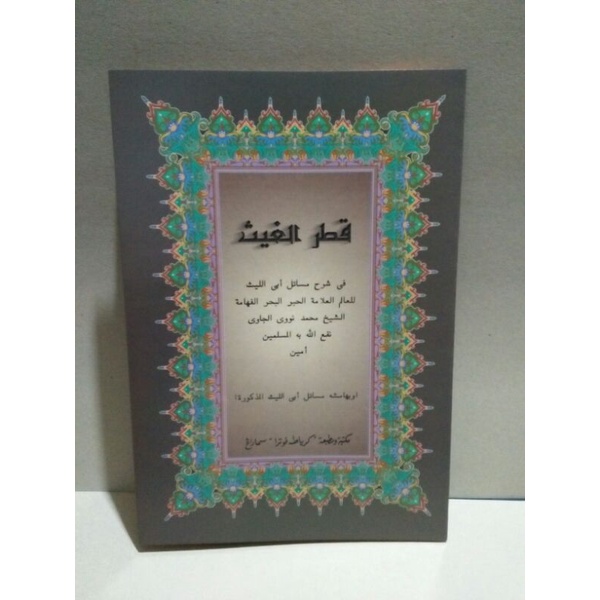 قطر الغيث
فى شرح مسائل أبى الليث
للعالم العلامة الحبر البحر الفهامة
الشيخ محمد نووى الجاوى
نفع الله به المسلمين
أمين
(وبهامشه مسائل أبى الليث الذكورة)
مكتبة ومطبعة "كرياطه فوترا" سماراغ